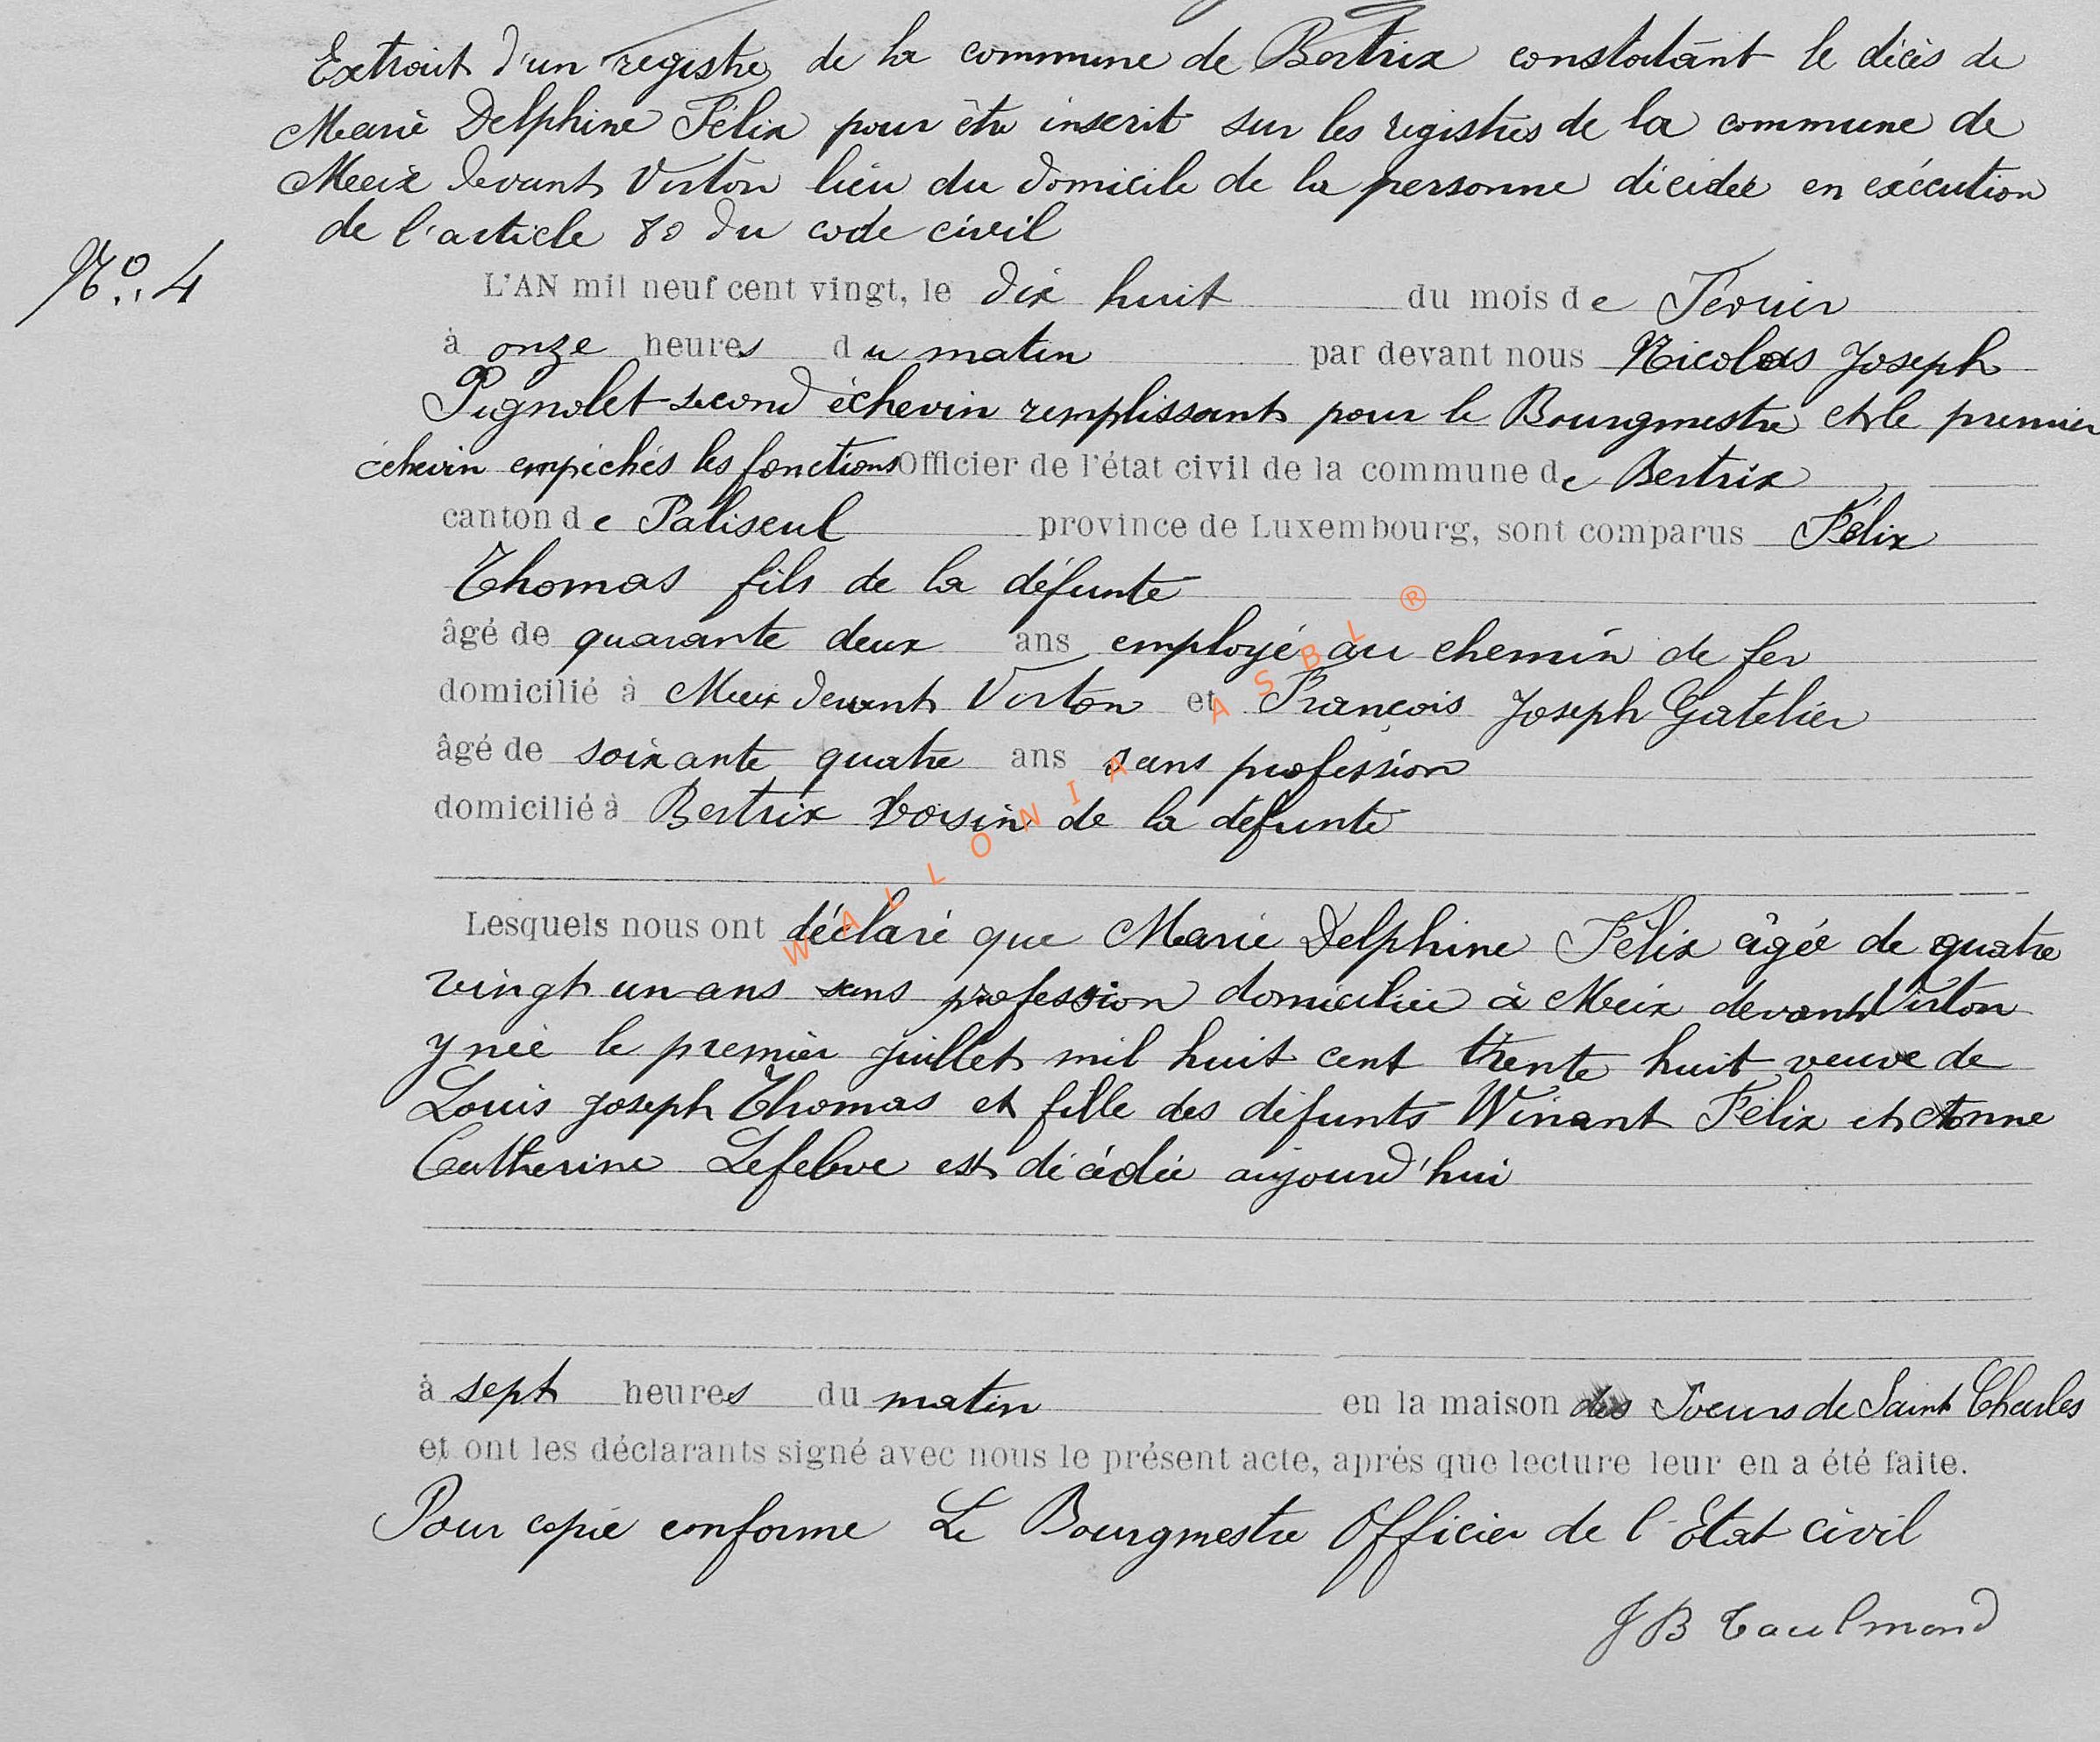 Extrait d'un registre de la commune de Bertrix constatant le décès de
Marie Delphine Félix pour être inscrit sur les registres de la commune de
Meix devant Virton lieu du domicile de la personne décédée en exécution
de l'article 80 du code civil
No. 4
L'AN mil neuf cent vingt, le dix huit du mois de Février
à onze heures du matin par devant nous Nicolas Joseph
Pignolet second échevin remplissant pour le Bourgmestre et le premier
échevin empêchés les fonctions Officier de l'état civil de la commune de Bertrix
canton de Paliseul province de Luxembourg, sont comparus Félix
Thomas fils de la défunte
âgé de quarante deux ans employé au chemin de fer
domicilié à Meix devant Virton et François Joseph Gatelier
âgé de soixante quatre ans sans profession
domicilié à Bertrix voisin de la défunte
Lesquels nous ont déclaré que Marie Delphine Félix âgée de quatre
vingt un ans sans profession domiciliée à Meix devant Virton
y née le premier juillet mil huit cent trente huit veuve de
Louis Joseph Thomas et fille des défunts Winant Félix et Anne
Catherine Lefebve est décédée aujourd'hui
à sept heures du matin en la maison des Soeurs de Saint Charles
et ont les déclarants signé avec nous le présent acte, après que lecture leur en a été faite.
Pour copie conforme Le Bourgmestre Officier de l'Etat civil
JB Taulmond
WALLONIA ASBL ®